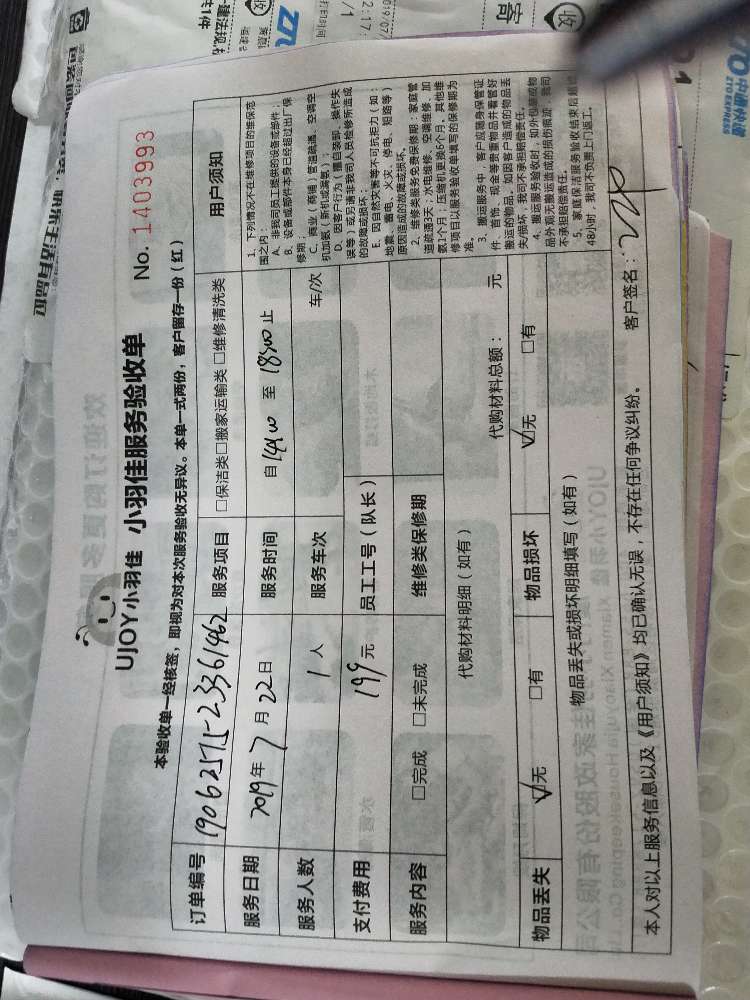 UJOY小羽佳 小羽佳服务验收单
No. 1403993
本验收单一经核签，即视为对本次服务验收无异议。本单一式两份，客户留存一份（红）
订单编号 服务项目 □保洁类□搬家运输类 □维修清洗类
服务日期 2019年7月22日 服务时间 自 至 止
服务人数 1人 服务车次 车/次
支付费用 199元 员工工号（队长）
服务内容 □完成 □未完成 维修类保修期
代购材料明细（如有） 代购材料总额： 元
物品丢失 ☑无 □有 物品损坏 ☑无 □有
物品丢失或损坏明细填写（如有）
用户须知
1、下列情况不在维修项目的维保范
围之内：
A、非我司员工提供的设备或部件；
B、设备或部件本身已经超过出厂保
修期；
C、商业，商铺，管道疏通，空调空
机加氨（新机或漏氨）；
D、因客户行为（擅自装卸、操作失
误等）或另请非我司人员检修所造成
的故障或损坏。
E、因自然灾害等不可抗拒力（如：
地震、雷电、火灾、停电、短路等）
原因造成的故障或损坏。
2、维修类服务免费保修期：家庭管
道疏通3天；水电维修、空调维修、加
氨1个月，压缩机更换6个月，其他维
修项目以服务验收单填写的保修期为
准。
3、搬运服务中，客户应随身保管证
件、首饰、现金等贵重物品并看管好
搬运的物品，如因客户造成的物品丢
失/损坏，我司不承担赔偿责任。
4、搬运服务验收时，如外包装或物
品外观无搬运造成的损伤痕迹，我司
不承担赔偿责任。
5、家庭保洁服务验收结束后超过
48小时，我司不负责上门返工。
本人对以上服务信息以及《用户须知》均已确认无误，不存在任何争议纠纷。 客户签名：
中通快递
ZTO EXPRESS